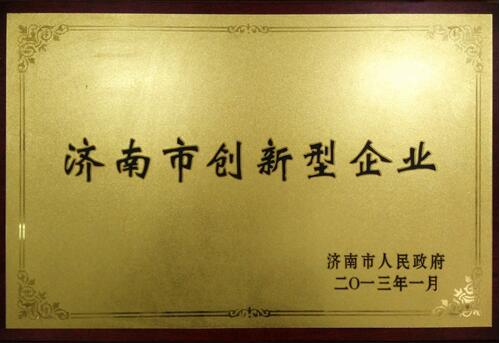 济南市创新型企业
济南市人民政府
二〇一三年一月